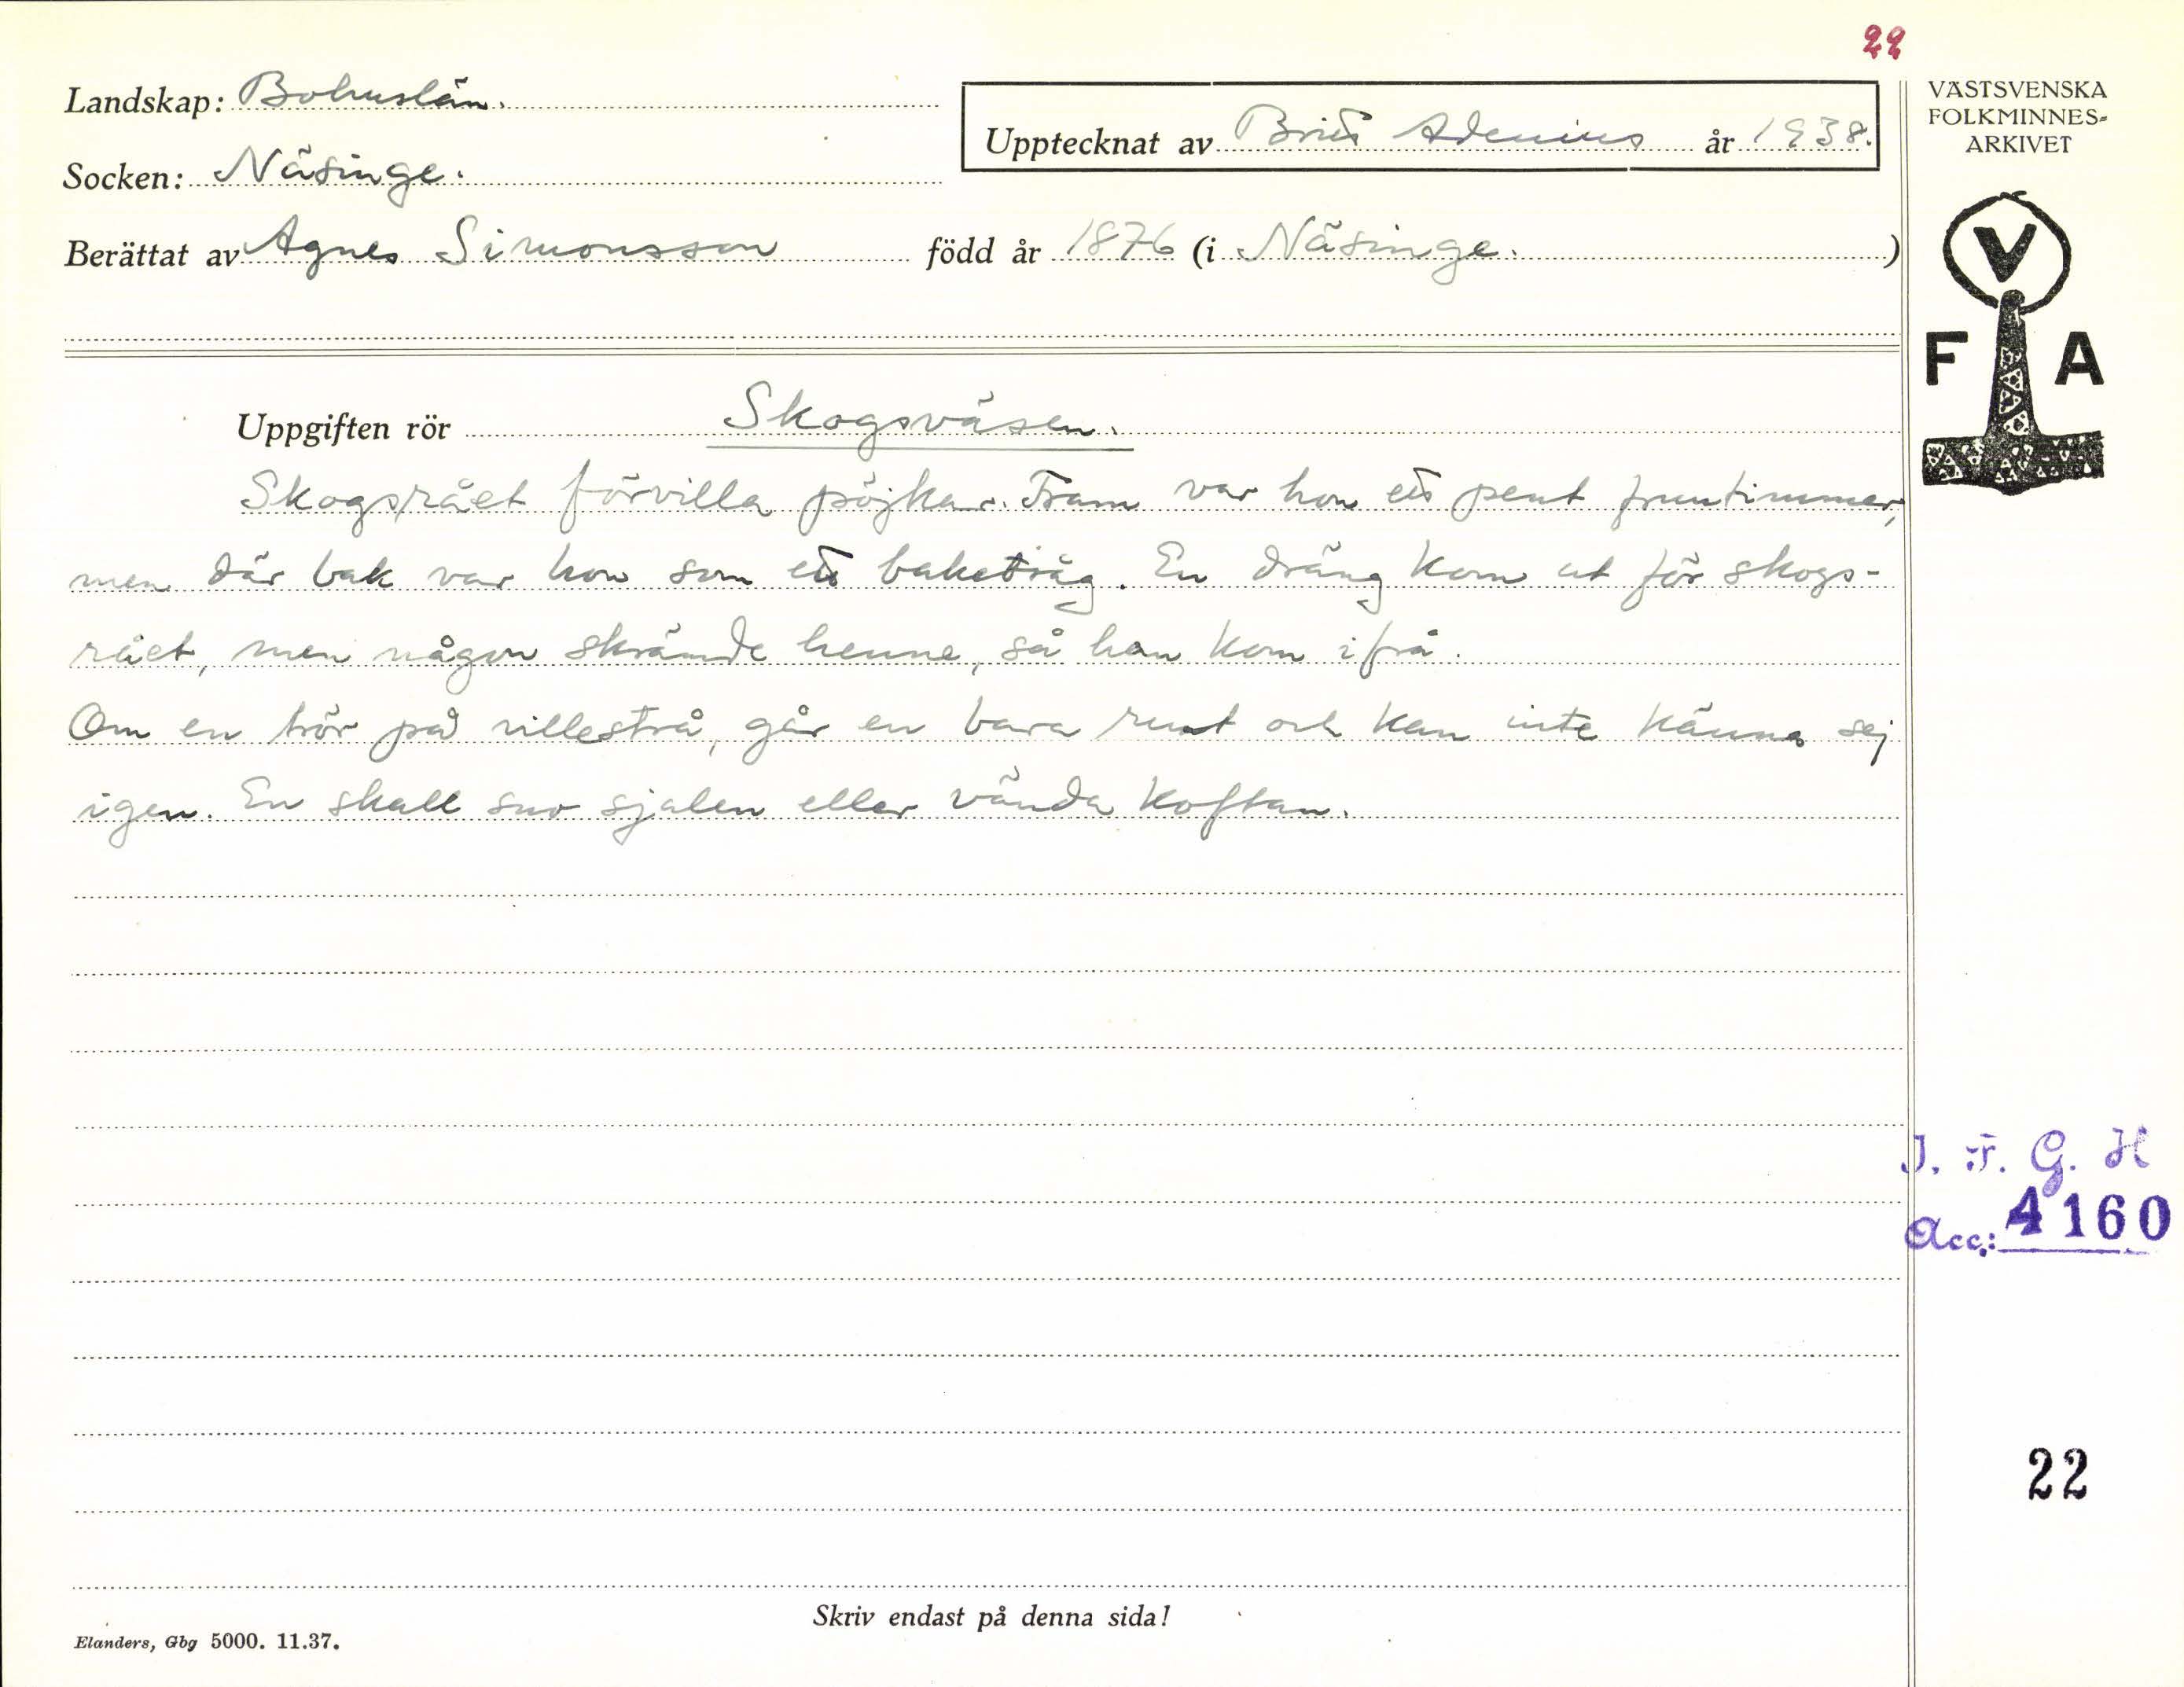 22
Landskap: Bohuslän.
Upptecknat av Britt Adenius år 1938.
Socken: Näsinge.
Berättat av Agnes Simonsson född år 1876 (i Näsinge.)
Uppgiften rör Skogsväsen.
Skogsrået förvilla pöjkar. Fram var hon ett pent fruntimmer,
men där bak var hon som ett baketråg. En dräng kom ut för skogs-
rået, men någon skrämde henne, så han kom ifrå.
Om en trör på villestrå, går en bara runt och kan inte känna sej
igen. En skall sno sjalen eller vända koftan.
Skriv endast på denna sida!
Elanders, Gbg 5000. 11.37.
VÄSTSVENSKA
FOLKMINNES-
ARKIVET
V
F A
I. F. G. H
Acc.: 4160
22